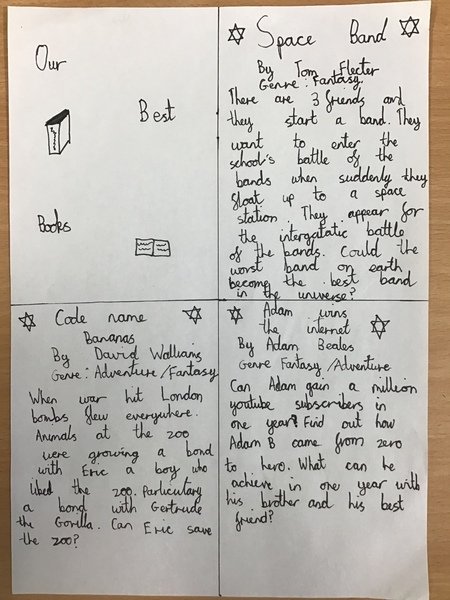 Our
Best
Books
Space Band
By Tom Flecter
Genre: Fantasy.
There are 3 friends and
they start a band. They
want to enter the
school's battle of the
bands when suddenly they
float up to a space
station. They appear for
the intergalatic battle
of the bands. Could the
worst band on earth
become the best band
in the universe?
Code name
Bananas
By David Walliams
Genre: Adventure/Fantasy
When war hit London
bombs flew everywhere.
Animals at the zoo
were growing a bond
with Eric a boy who
liked the zoo. Particulary
a bond with Gertrude
the Gorilla. Can Eric save
the zoo?
Adam wins
the internet
By Adam Beales
Genre Fantasy/Adventure
Can Adam gain a million
youtube subscribers in
one year? Find out how
Adam B came from zero
to hero. What can he
achieve in one year with
his brother and his best
friend?